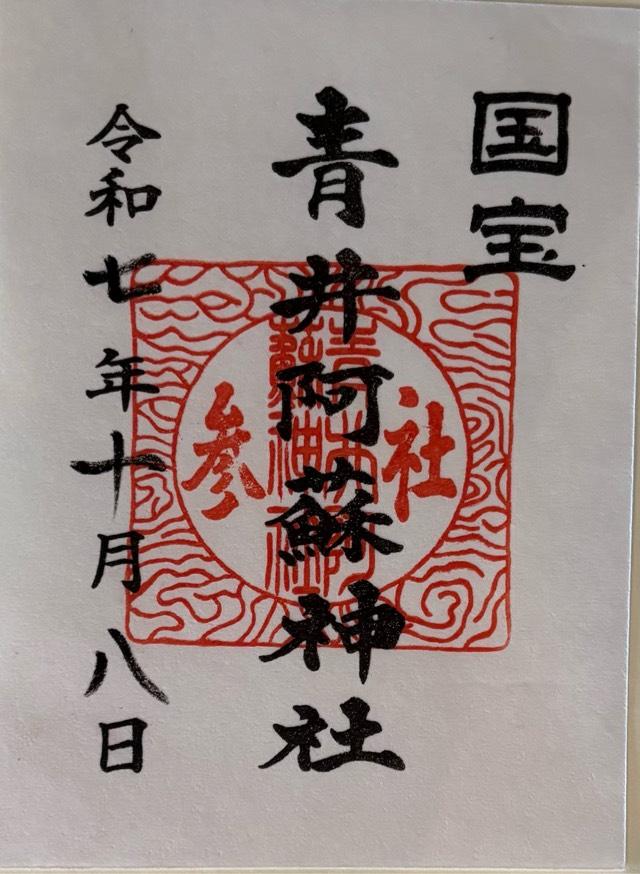 国宝
青井阿蘇神社
令和七年十月八日
社参
青井阿蘇神社